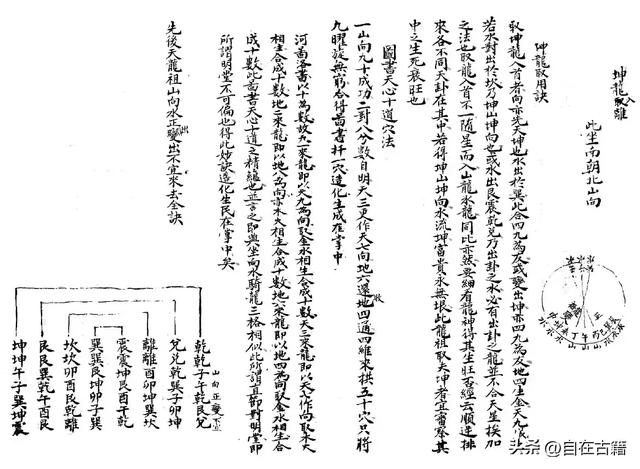 坤龍入離
此坐南朝北山向
坤龍取用訣
取坤龍入首者向亦先天坤也水出於巽此合四九為友或變出坤亦四九為友地四生金天九成
若水對出於坎乃坤山坤向也或水出艮震乾兌乃出卦之水必有出卦之龍並不合天星挨加
之法也取龍入首不一隨星而入山龍水龍同此亦然要細看龍神得其生旺否經云順逆排
來各不同天卦在其中若得坤山坤向水流坤富貴永無垠此龍祖取夫坤者宜審察其
中之生死衰旺也
圖書天心十道穴法
一山向九十成功二對八分數目明天三更作天七向地六還地四通四維來拱五十穴只將
九曜旋無窮合得圖書扦一穴造化生成在掌中
河圖洛書以十為數故九一來龍即以天九為向取金水相生合成十數天三來龍即以天七作向取木火
相生合成十數地二來龍即以地八為向亦木火相生合成十數地六來龍即以地四為向取金水相生合
成十數此圖書天心十道之精緼也並言之即與坐向水騎龍三格相似此所謂直節對明堂即
所謂明堂不可偏也得此妙訣造化生民在掌中矣
先後天龍祖山向水正變出不宜來去全訣
山向正變不宜
乾乾子午乾艮兌
兌兌乾巽子卯坤
離離酉卯坤巽坎
震震坤艮酉午乾
巽巽艮坤卯子巽
坎坎卯酉艮乾離
艮艮巽乾午酉艮
坤坤午子巽坤震
头条 @自在古籍